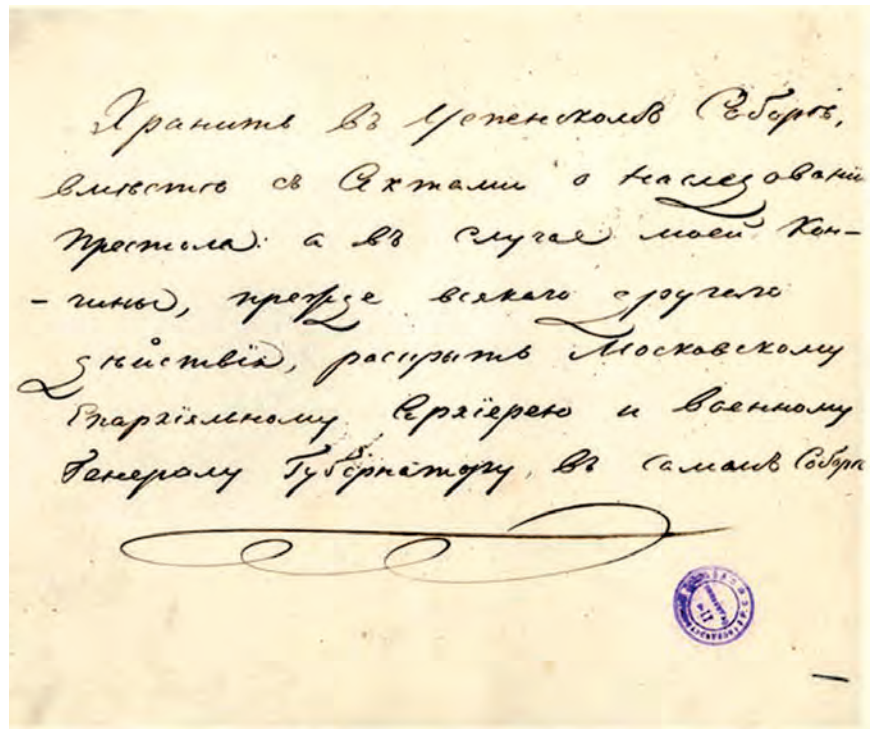 Хранить въ Успенскомъ Соборѣ,
вмѣстѣ съ Актами о наследовании
Престола: а въ случае моей Кон-
-чины, прежде всякаго другаго
дѣйствія, раскрыть Московскому
Епархіяльному Архіерею и Военному
Генералу Губернатору, въ самомъ Соборѣ